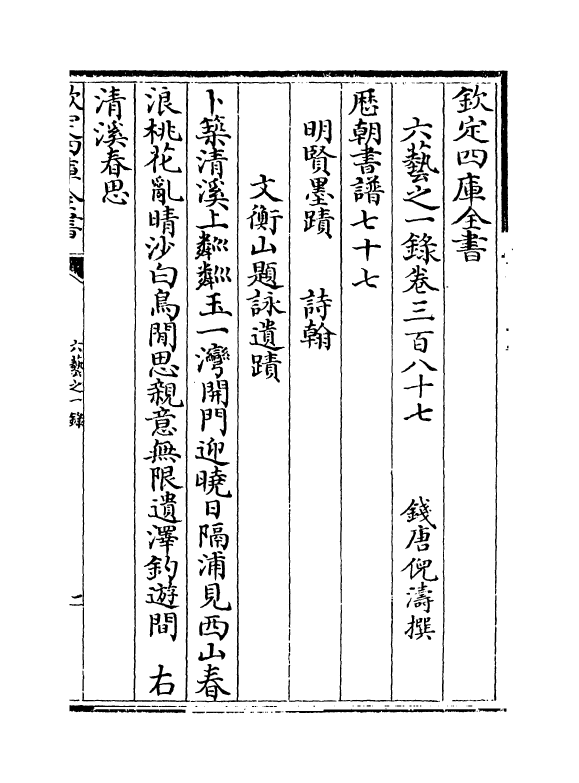 欽定四庫全書
六藝之一錄卷三百八十七　錢唐倪濤撰
歷朝書譜七十七
明賢墨蹟　詩翰
文衡山題詠遺蹟
卜築清溪上粼粼玉一灣開門迎曉日隔浦見西山春
浪桃花亂晴沙白鳥閒思親意無限遺澤釣遊間　右
清溪春思
欽定四庫全書
六藝之一錄
一